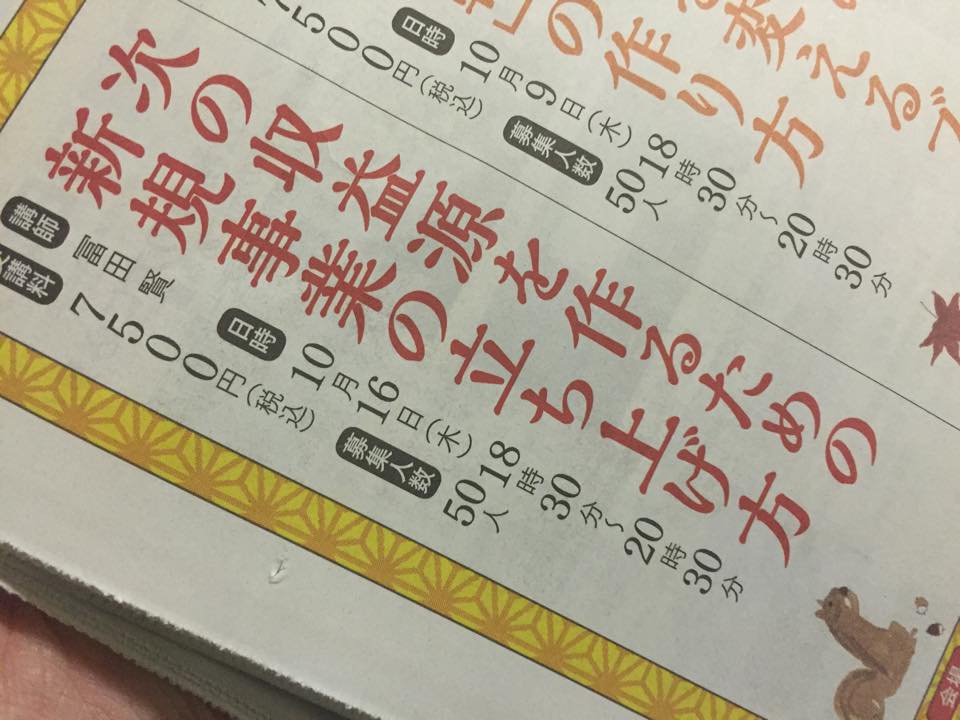 変える
の作り方
日時 10月9日(木)18時30分〜20時30分
7500円(税込) 募集人数 50人
次の収益源を作るための
新規事業の立ち上げ方
講師 冨田 賢 日時 10月16日(木)18時30分〜20時30分
講料 7500円(税込) 募集人数 50人
会場